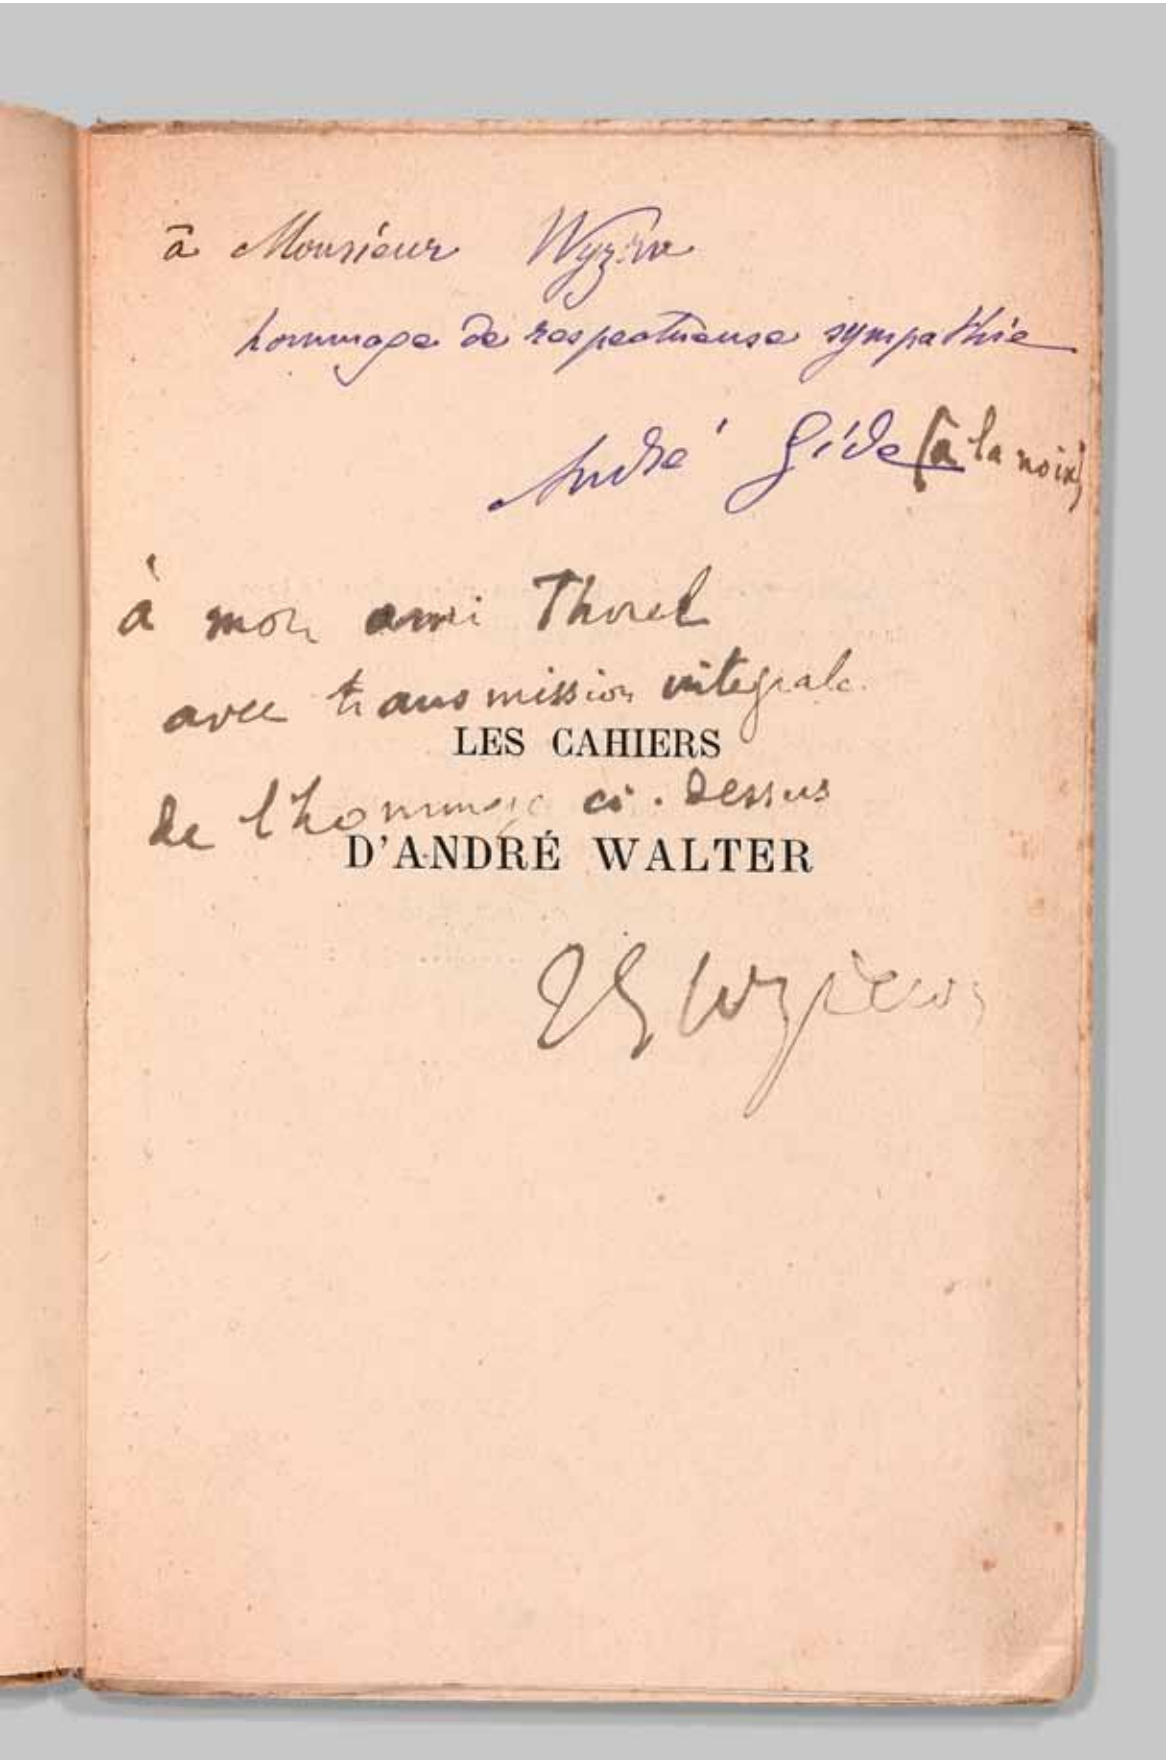 à Monsieur Wyzewa
hommage de respectueuse sympathie
André Gide (à la noix)
à mon ami Thorel
avec transmission intégrale
LES CAHIERS
de l'hommage ci-dessus
D'ANDRÉ WALTER
T Wyzewa